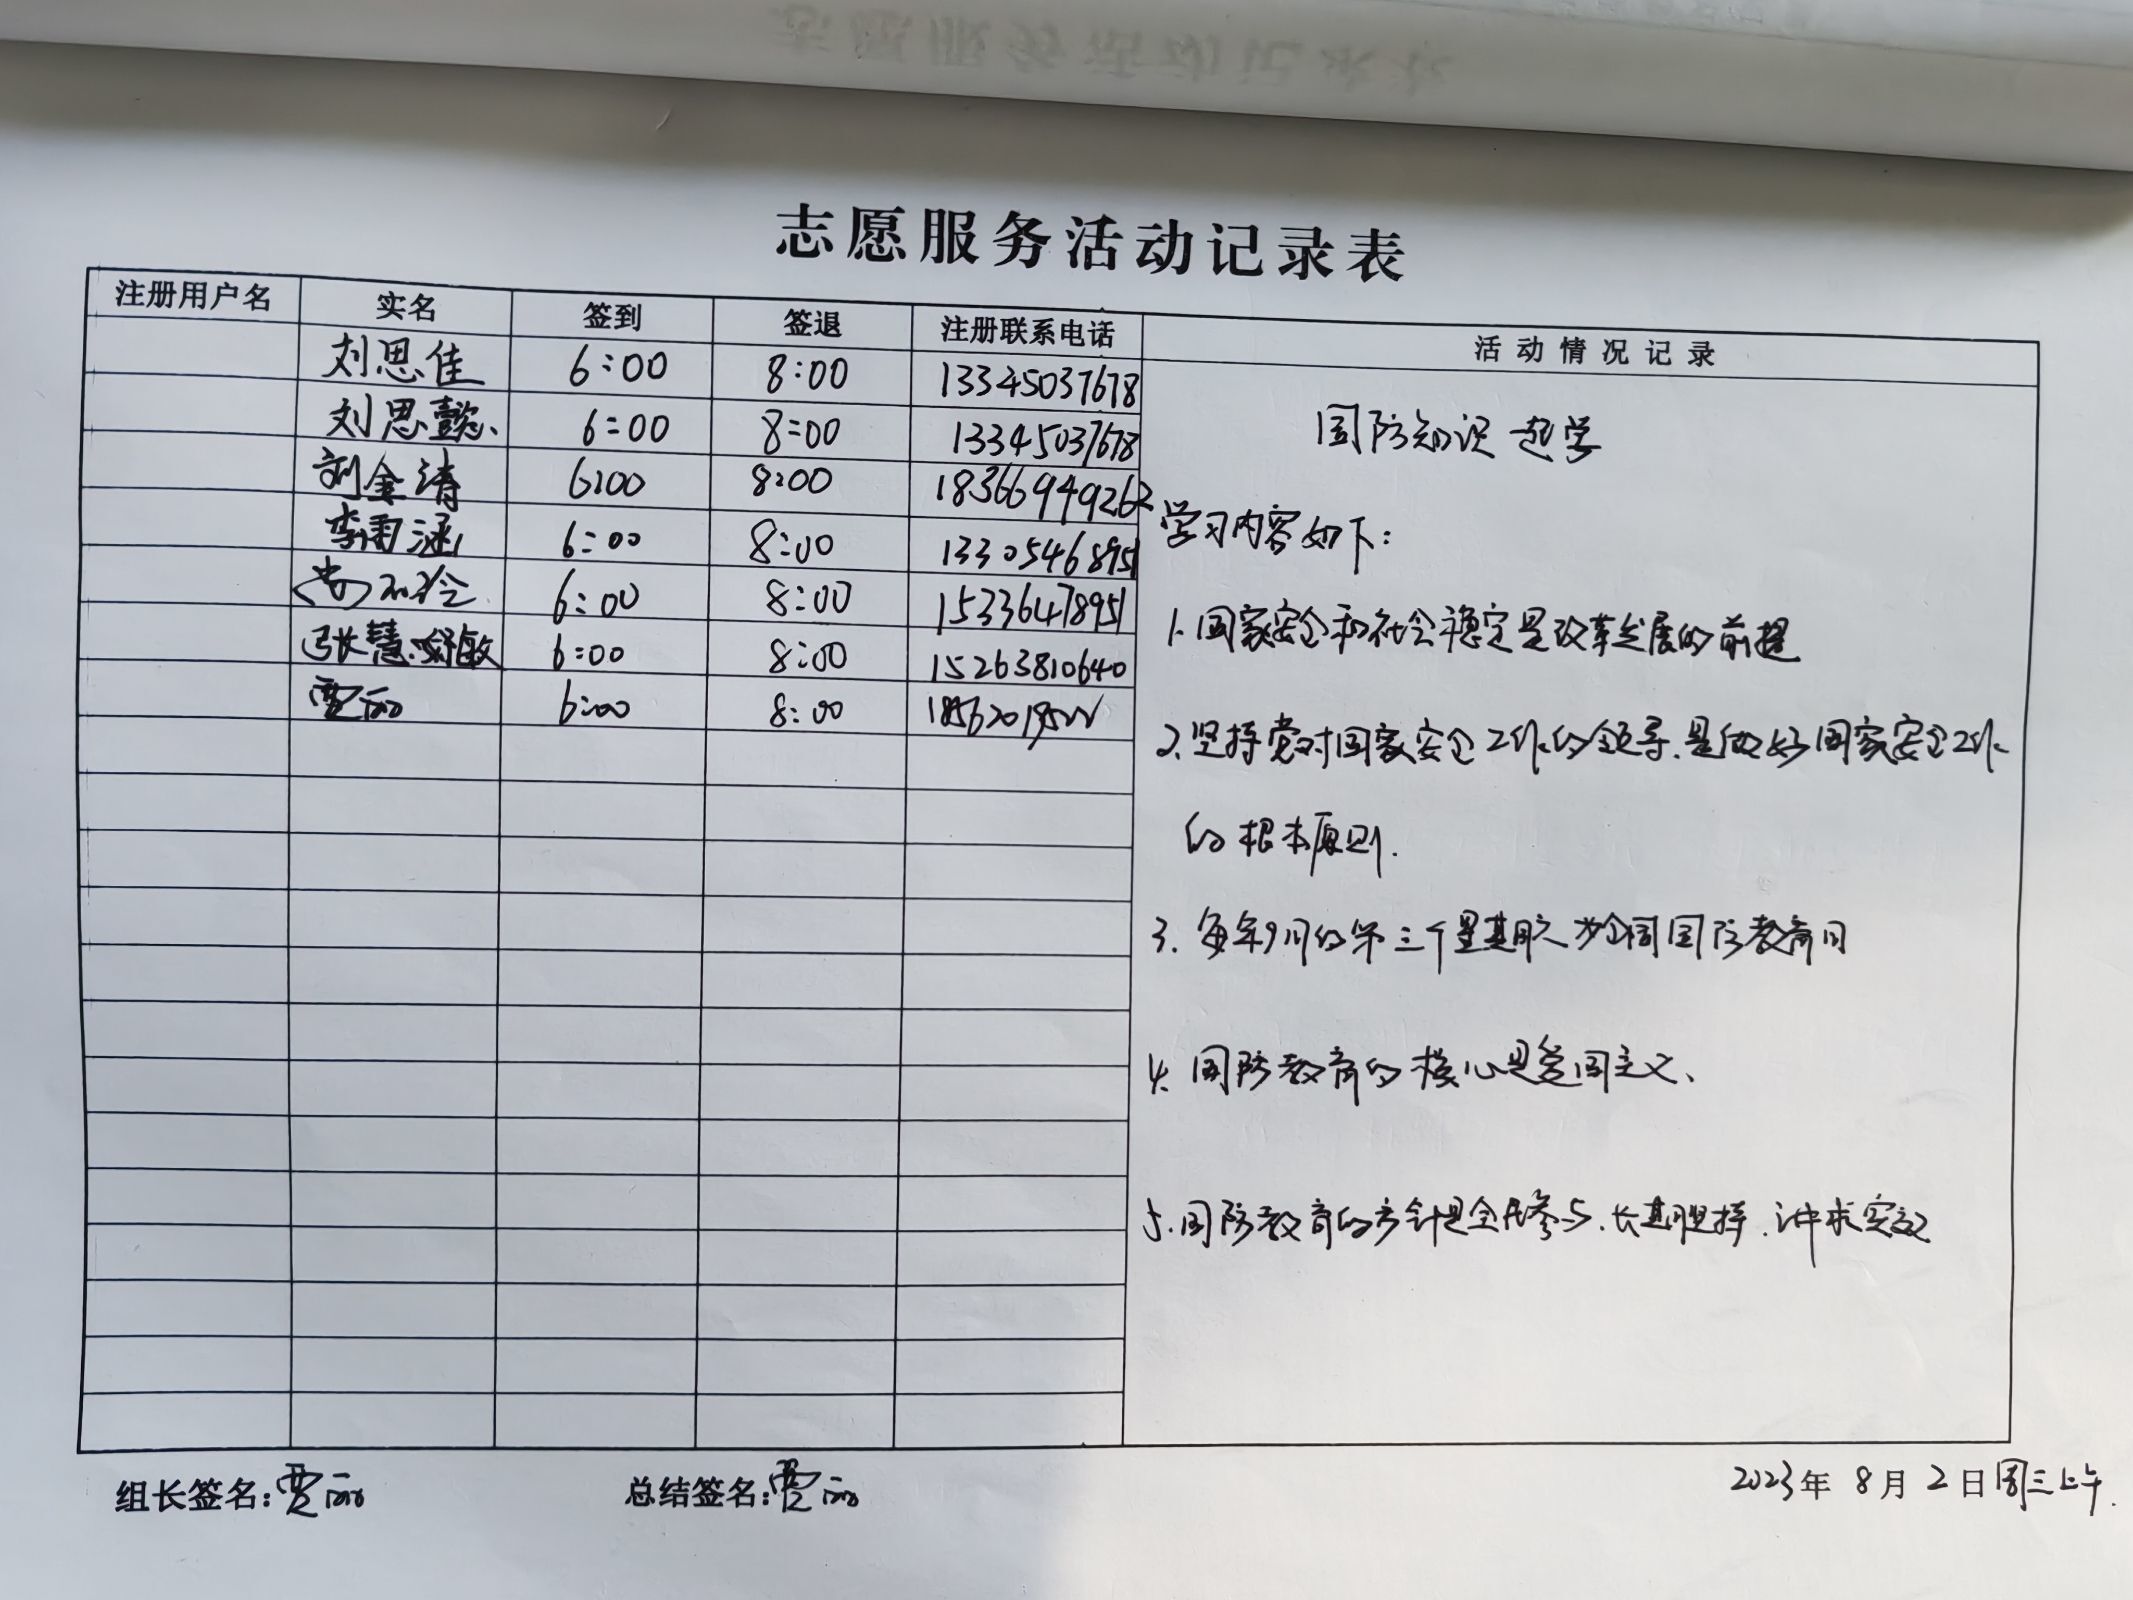 志愿服务活动记录表
注册用户名 实名 签到 签退 注册联系电话 活动情况记录
刘思佳 6:00 8:00 13345037678
刘思懿 6:00 8:00 13345037678
刘金涛 6:00 8:00 18366949262
李雨涵 6:00 8:00 13305468951
6:00 8:00 15336478951
张慧敏 6:00 8:00 15263810640
贾丽 6:00 8:00
国防知识一起学
学习内容如下:
1.国家安全和社会稳定是改革发展的前提
2.坚持党对国家安全工作的领导.是做好国家安全工作
的根本原则.
3.每年9月的第三个星期六为全国国防教育日
4.国防教育的核心是爱国主义、
5.国防教育的方针是全民参与、长期坚持、讲求实效
组长签名:贾丽 总结签名:贾丽 2023年8月2日周三上午.